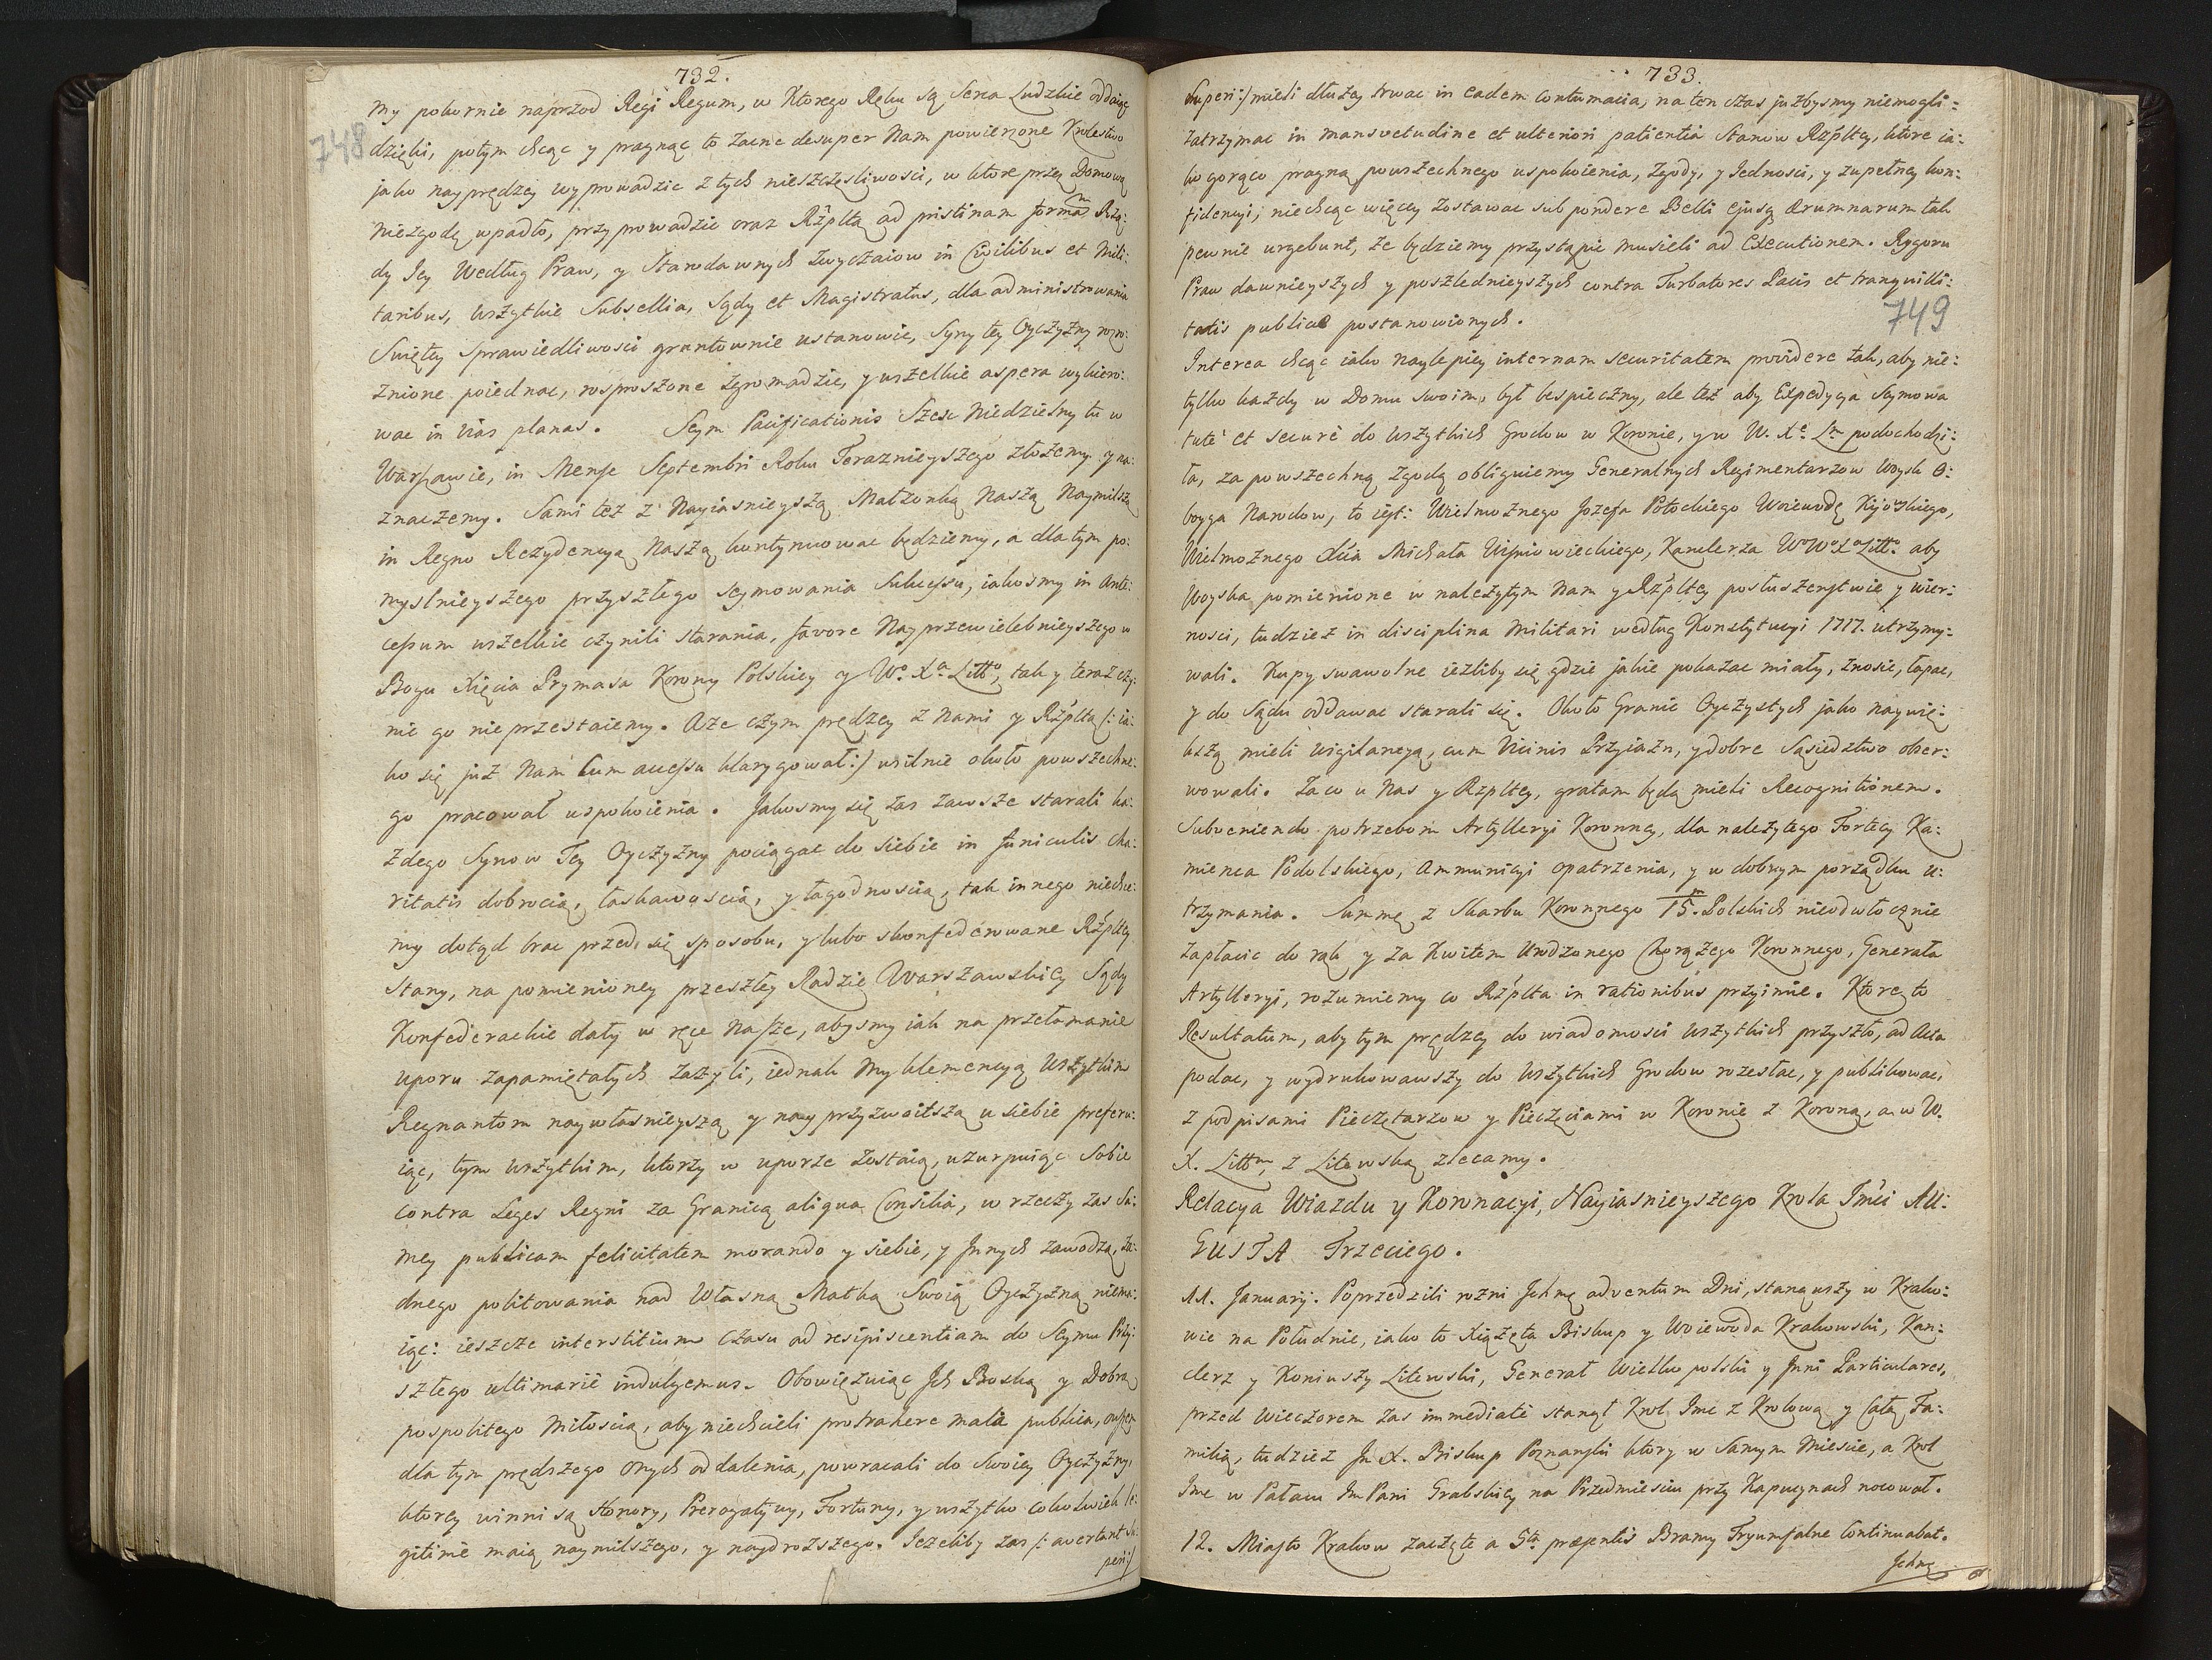 732.
my pokornie naprzod Regi Regum, w Ktorego Ręku są Serca Ludzkie oddaiąc
748
dzięki, potym chcąc y pragnąc to zacne desuper Nam powierzone Krolestwo
jako nayprędzey wyprowadzic z tych nieszczęsliwosci, w ktore przez Domową
niezgodę wpadło, przyprowadzic oraz Rzpltą ad pristinam formam Rzą:
dy Jey Według Praw, y Starodawnych zwyczaiow in Civilibus et Mili:
taribus, wszytkie Subsellia, Sądy et Magistratus, dla administrowania
Swiętey Sprawiedliwosci gruntownie ustanowic, Syny tey Oyczyzny rozro:
znione poiednac, rosproszone zgromadzic, y wszelkie aspera wykiero:
wac in vias planas. Seym Pacificationis Szesc Niedzielny tu w
Warszawie, in Mense Septembri Roku Terazniejszego złożemy y na:
znaczemy. Sami też z Nayiasnieyszą Małżonką Naszą Naymilszą
in Regno Rezydencyą Naszą kontynuowac będziemy, a dla tym po:
myslnieyszego przyszłego seymowania Sukcessu, jakosmy in ante:
cessum wszelkie czynili starania, favore Nayprzewielebnieyszego w
Bogu Xięcia Prymasa Korony Polskiey y Wo. Xa Litto, tak y teraz czy:
nic go nie przestaiemy. Aże czym prędzey z Nami y Rzpltą /: ia:
ko się już Nam cum accessu klarygował :/ usilnie około powszechne:
go pracował uspokoienia. Jakosmy się zas zawsze starali ka:
żdego Synow Tey Oyczyzny pociągac do siebie in funiculis cha:
ritatis dobrocią, łaskawoscią, y łagodnoscią, tak innego niechce:
my dotąd brac przed się sposobu, y lubo skonfederowane Rzpltey
Stany, na pomienioney przeszłey Radzie Warszawskiey Sądy
Konfederackie dały w ręce Nasze, abysmy iak na przełamanie
uporu zapamiętałych zażyli, iednak my klemencyą wszytkim
Regnantom naywłasnieyszą y nayprzyzwoitszą u siebie preferu:
iąc, tym wszytkim, ktorzy w uporze zostaią, uzurpuiąc Sobie
contra Leges Regni za Granicą aliqua Consilia, w rzeczy zas Sa:
mey publicam felicitatem morando y siebie, y Innych zawodzą, ża:
dnego politowania nad Własną Matką Swoią Oyczyzną niema:
iąc: ieszcze interstitium czasu ad resipiscentiam do Seymu Przy:
szłego ultimarie indulgemus. Obowięzuiąc Ich Boską y Dobra
pospolitego Miłoscią, aby niechcieli protrahere mala publica, owszem
dla tym prędszego onych oddalenia, powracali do Swoiey Oyczyzny,
ktorey winni są Honory, Prerogatywy, Fortuny, y wszytko cokolwiek le:
gitime maią naymilszego, y naydrozszego. Jezeliby zas /: avertant Su:
peri :/
733.
Superi :/ mieli dłużey trwac in eadem contumacia, na ten czas jużbysmy niemogli:
zatrzymac in mansvetudine et ulteriori patientia Stanow Rzpltey, ktore ia:
ko gorąco pragną powszechnego uspokoienia, zgody, y Jednosci, y zupełney kon:
fidencyi, niechcąc więcey zostawac sub pondere Belli ejusq ærumnarum tak
pewnie urgebunt, że będziemy przystąpic musieli ad Executionem. Rygoru
Praw dawnieyszych y poszlednieyszych contra Turbatores Pacis et tranquilli:
tatis publicæ postanowionych.
749
Interea chcąc iako naylepiey internam securitatem providere tak, aby nie:
tylko każdy w Domu swoim, był bespieczny, ale też aby Expedycya Seymowa
tutè et securè do wszytkich Grodow w Koronie, y w W. Xe. Lm podochodzi:
ła, za powszechną zgodą obliguiemy Generalnych Regimentarzow Woysk O:
boyga Narodow, to iest: Wielmożnego Jozefa Potockiego Woiewodę Kijowskiego,
Wielmożnego Xcia Michała Wisniowieckiego, Kanclerza Wo Wo Xa Litto. aby
Woyska pomienione w należytym Nam y Rzpltey posłuszenstwie y wier:
nosci, tudziez in disciplina Militari według Konstytucyi 1717. utrzymy:
wali. Kupy swawolne iezliby się gdzie jakie pokazac miały, znosic, łapac,
y do Sądu oddawac starali się. Około Granic Oyczystych jako naywię:
kszą mieli vigilancyą, cum Vicinis Przyiazn, y dobre Sąsiedztwo obser:
wowali. Za co u Nas y Rzpltey, gratam będą mieli Recognitionem.
Subveniendo potrzebom Artylleryi Koronney, dla należytego Fortecy Ka:
mienca Podolskiego, Ammunicyi opatrzenia, y w dobrym porządku u:
trzymania. Summę z Skarbu Koronnego 15.m Polskich nieodwłocznie
zapłacic do rąk y za Kwitem Urodzonego Chorążego Koronnego, Generała
Artylleryi, rozumiemy co Rzplta in rationibus przyimie. Ktore to
Resultatum, aby tym prędzey do wiadomosci wszytkich przyszło, ad Acta
podac, y wydrukowawszy do wszytkich Grodow rozesłac, y publikowac,
z podpisami Pieczętarzow y Pieczęciami w Koronie z Koronną, a w W.
X. Littm, z Litewską zlecamy.
Relacya Wiazdu y Koronacyi, Nayiasnieyszego Krola Jmci AU:
GUSTA Trzeciego.
11. January. Poprzedzili rożni Ichmę adventum Dni, stanąwszy w Krako:
wie na Południe, iako to Xiążęta Biskup y Woiewoda Krakowski, Kan:
clerz y Koniuszy Litewski, Generał Wielkopolski y Inni Particulares,
przed wieczorem zas immediate stanął Krol Jmc z Krolową y Całą Fa:
milią, tudziez Jm X. Biskup Poznanski ktory w Samym Miescie, a Krol
Jmc w Pałacu Jm Pani Grabskiey na Przedmiesciu przy Kapucynach nocował.
12. Miasto Krakow zaczęte a 5ta præsentis Bramy Tryumfalne Continuabat.
Ichmę